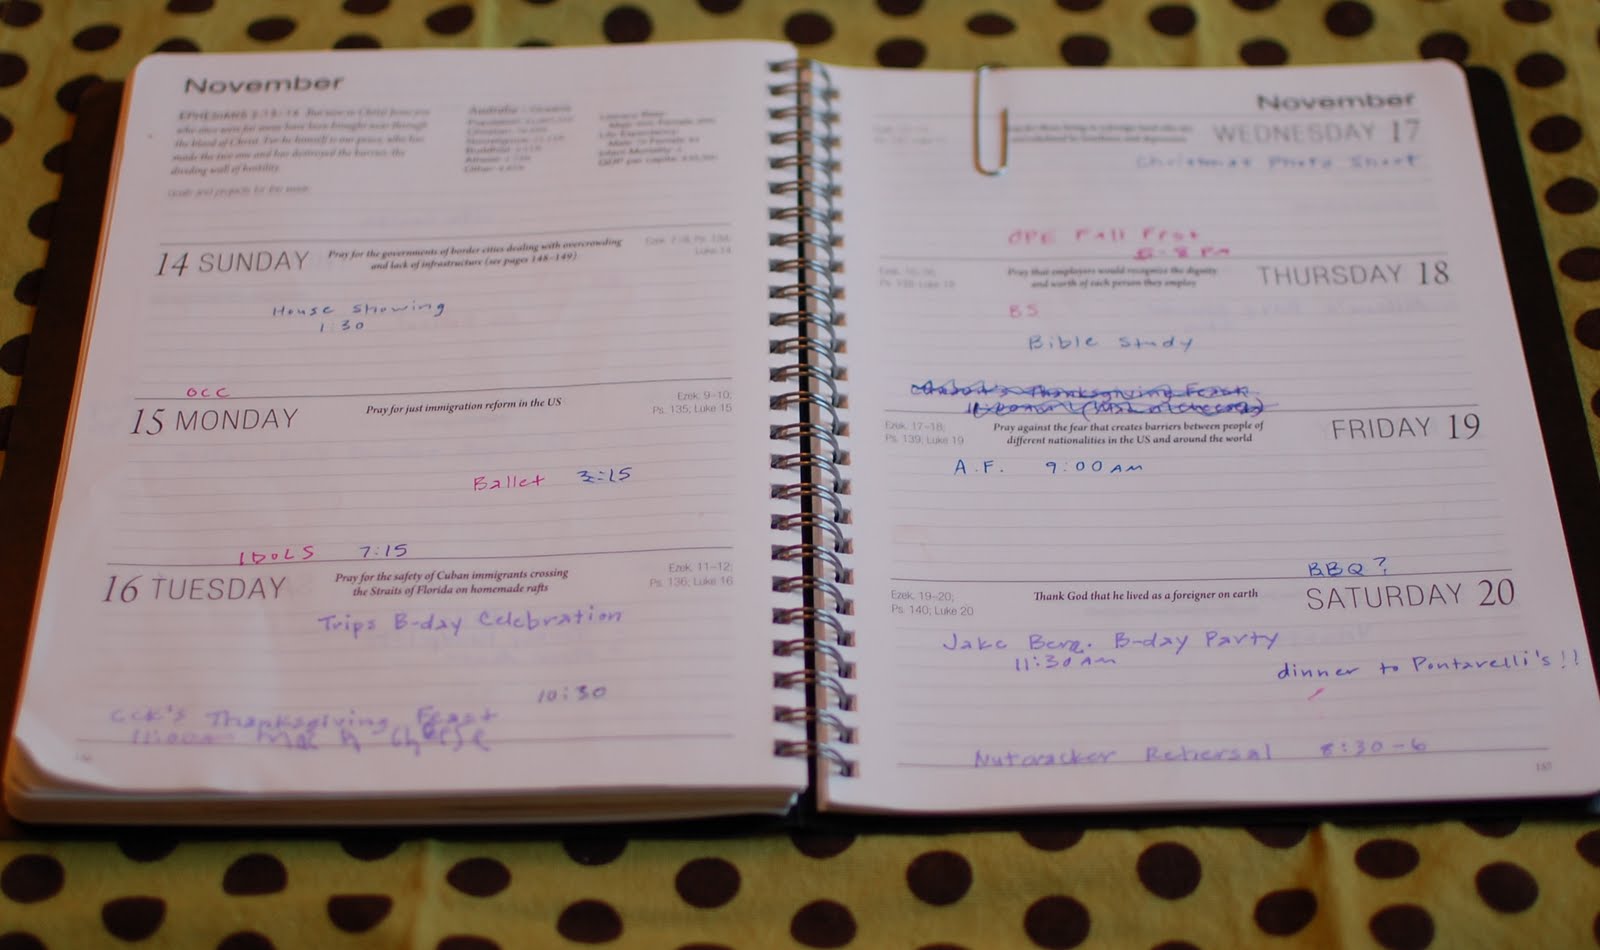 November
EPHESIANS 2:13-14 But now in Christ Jesus you
who once were far away have been brought near through
the blood of Christ. For he himself is our peace, who has
made the two one and has destroyed the barrier, the
dividing wall of hostility.
Goals and projects for this week:
Australia - Oceania
Life Expectancy:
14 SUNDAY
Pray for the governments of border cities dealing with overcrowding
and lack of infrastructure (see pages 148-149)
Luke 14
House showing
1:30
OCC
15 MONDAY
Pray for just immigration reform in the US
Ezek. 9-10;
Ps. 135; Luke 15
Ballet :15
IDOLS 7:15
16 TUESDAY
Pray for the safety of Cuban immigrants crossing
the Straits of Florida on homemade rafts
Ezek. 11-12;
Ps. 136; Luke 16
Trips B-day Celebration
10:30
CCK's Thanksgiving Feast
Mac n Cheese
November
WEDNESDAY 17
Christmas Photo Shoot
Fall Fest
THURSDAY 18
Pray that employers would recognize the dignity
and worth of each person they employ
BS
Bible Study
Thanksgiving Feast
FRIDAY 19
Ezek. 17-18;
Ps. 139; Luke 19
Pray against the fear that creates barriers between people of
different nationalities in the US and around the world
A.F. 9:00 AM
BBQ?
SATURDAY 20
Ezek. 19-20;
Ps. 140; Luke 20
Thank God that he lived as a foreigner on earth
Jake B-day Party
11:30 AM
dinner to Pontarelli's!!
Nutcracker Rehersal 8:30-6